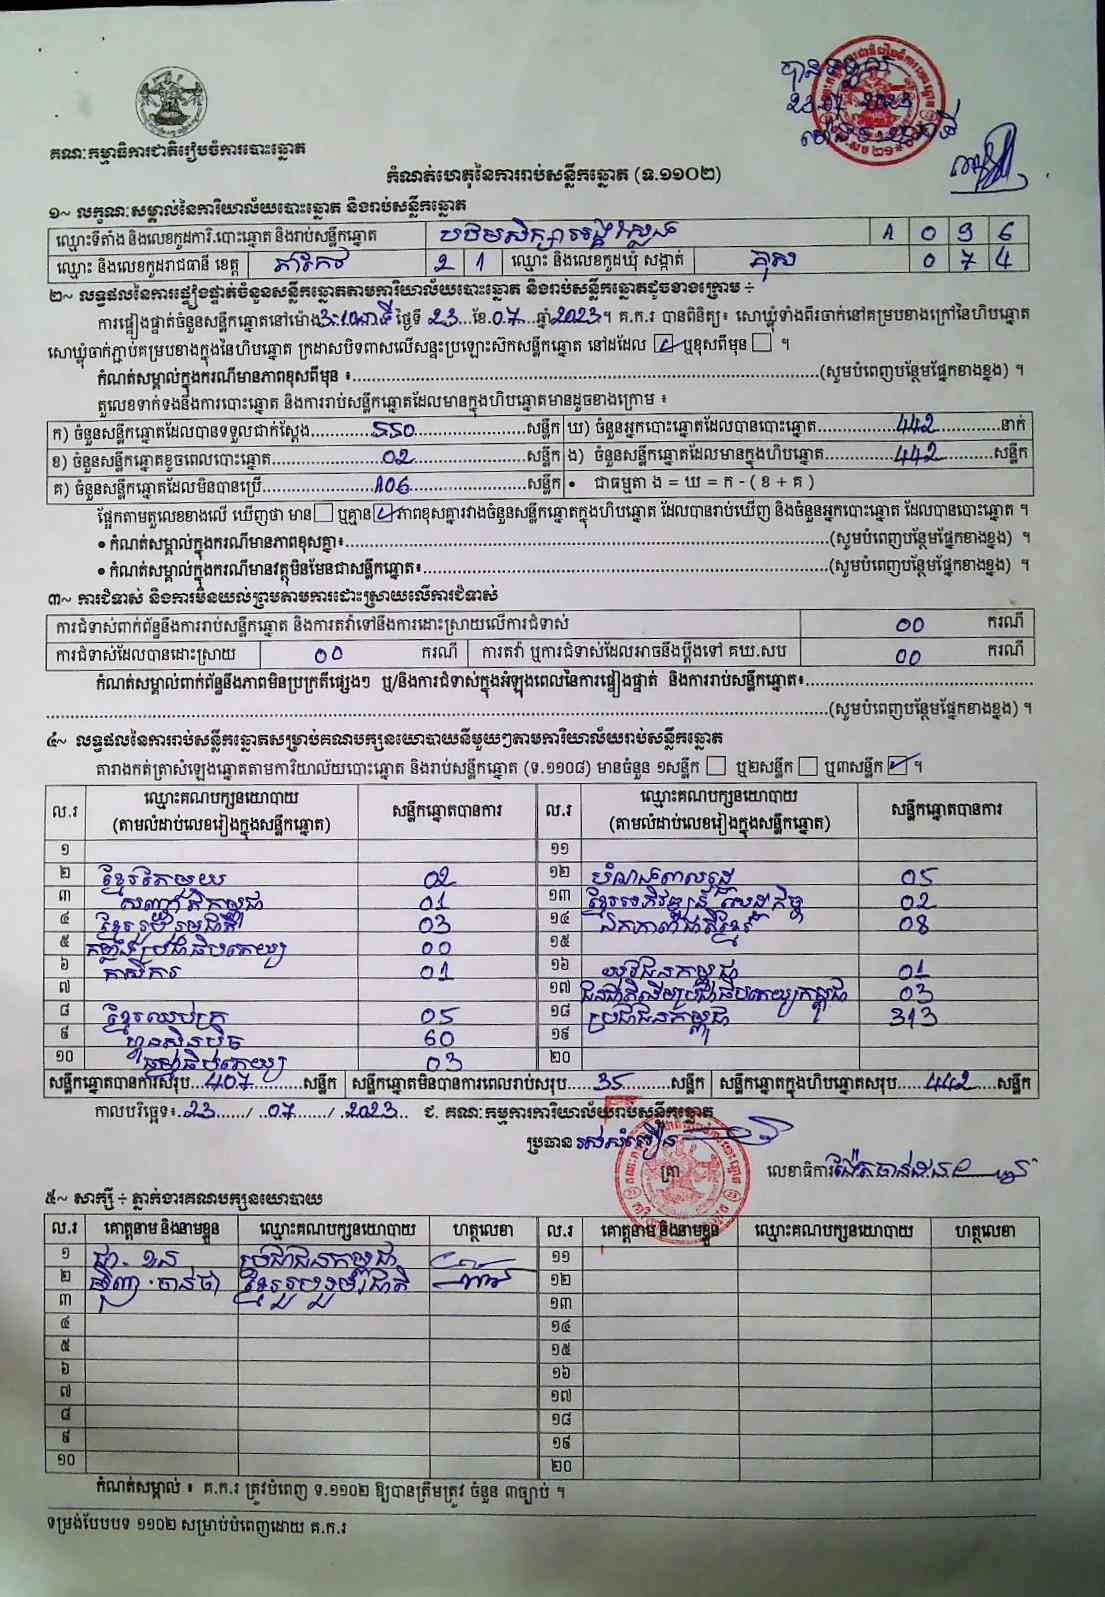 បានទទួល
23.07.2023
គណៈកម្មាធិការជាតិរៀបចំការបោះឆ្នោត
កំណត់ហេតុនៃការរាប់សន្លឹកឆ្នោត (ទ.១១០២)
១~ លក្ខណៈសម្គាល់នៃការិយាល័យបោះឆ្នោត និងរាប់សន្លឹកឆ្នោត
ឈ្មោះទីតាំង និងលេខកូដការិ.បោះឆ្នោត និងរាប់សន្លឹកឆ្នោត បឋមសិក្សាអង្គស្លែង A 0 9 6
ឈ្មោះ និងលេខកូដរាជធានី ខេត្ត តាកែវ 2 1 ឈ្មោះ និងលេខកូដឃុំ សង្កាត់ គុស 0 7 4
២~ លទ្ធផលនៃការផ្ទៀងផ្ទាត់ចំនួនសន្លឹកឆ្នោតតាមការិយាល័យបោះឆ្នោត និងរាប់សន្លឹកឆ្នោតដូចខាងក្រោម ÷
ការផ្ទៀងផ្ទាត់ចំនួនសន្លឹកឆ្នោតនៅម៉ោង 3:10នាទី ថ្ងៃទី 23 ខែ 07 ឆ្នាំ 2023 ។ គ.ក.រ បានពិនិត្យ៖ សោឃ្លុំទាំងពីរចាក់នៅគម្របខាងក្រៅនៃហិបឆ្នោត
សោឃ្លុំចាក់ភ្ជាប់គម្របខាងក្នុងនៃហិបឆ្នោត ក្រដាសបិទពាសលើសន្ទះប្រឡោះស៊កសន្លឹកឆ្នោត នៅដដែល ☑ ឬខុសពីមុន ☐ ។
កំណត់សម្គាល់ក្នុងករណីមានភាពខុសពីមុន ៖ (សូមបំពេញបន្ថែមផ្នែកខាងខ្នង) ។
តួលេខទាក់ទងនឹងការបោះឆ្នោត និងការរាប់សន្លឹកឆ្នោតដែលមានក្នុងហិបឆ្នោតមានដូចខាងក្រោម ៖
ក) ចំនួនសន្លឹកឆ្នោតដែលបានទទួលជាក់ស្តែង 550 សន្លឹក ឃ) ចំនួនអ្នកបោះឆ្នោតដែលបានបោះឆ្នោត 442 នាក់
ខ) ចំនួនសន្លឹកឆ្នោតខូចពេលបោះឆ្នោត 02 សន្លឹក ង) ចំនួនសន្លឹកឆ្នោតដែលមានក្នុងហិបឆ្នោត 442 សន្លឹក
គ) ចំនួនសន្លឹកឆ្នោតដែលមិនបានប្រើ 106 សន្លឹក • ជាធម្មតា ង = ឃ = ក - ( ខ + គ )
ផ្អែកតាមតួលេខខាងលើ ឃើញថា មាន ☐ ឬគ្មាន ☑ ភាពខុសគ្នារវាងចំនួនសន្លឹកឆ្នោតក្នុងហិបឆ្នោត ដែលបានរាប់ឃើញ និងចំនួនអ្នកបោះឆ្នោត ដែលបានបោះឆ្នោត ។
• កំណត់សម្គាល់ក្នុងករណីមានភាពខុសគ្នា៖ (សូមបំពេញបន្ថែមផ្នែកខាងខ្នង) ។
• កំណត់សម្គាល់ក្នុងករណីមានវត្ថុមិនមែនជាសន្លឹកឆ្នោត៖ (សូមបំពេញបន្ថែមផ្នែកខាងខ្នង) ។
៣~ ការជំទាស់ និងការមិនយល់ព្រមតាមការដោះស្រាយលើការជំទាស់
ការជំទាស់ពាក់ព័ន្ធនឹងការរាប់សន្លឹកឆ្នោត និងការតវ៉ាទៅនឹងការដោះស្រាយលើការជំទាស់ 00 ករណី
ការជំទាស់ដែលបានដោះស្រាយ 00 ករណី ការតវ៉ា ឬការជំទាស់ដែលអាចនឹងប្តឹងទៅ គឃ.សប 00 ករណី
កំណត់សម្គាល់ពាក់ព័ន្ធនឹងភាពមិនប្រក្រតីផ្សេងៗ ឬ/និងការជំទាស់ក្នុងអំឡុងពេលនៃការផ្ទៀងផ្ទាត់ និងការរាប់សន្លឹកឆ្នោត៖
(សូមបំពេញបន្ថែមផ្នែកខាងខ្នង) ។
៤~ លទ្ធផលនៃការរាប់សន្លឹកឆ្នោតសម្រាប់គណបក្សនយោបាយនីមួយៗតាមការិយាល័យរាប់សន្លឹកឆ្នោត
តារាងកត់ត្រាសំឡេងឆ្នោតតាមការិយាល័យបោះឆ្នោត និងរាប់សន្លឹកឆ្នោត (ទ.១១០៨) មានចំនួន ១សន្លឹក ☐ ឬ២សន្លឹក ☐ ឬ៣សន្លឹក ☑ ។
ល.រ ឈ្មោះគណបក្សនយោបាយ (តាមលំដាប់លេខរៀងក្នុងសន្លឹកឆ្នោត) សន្លឹកឆ្នោតបានការ ល.រ ឈ្មោះគណបក្សនយោបាយ (តាមលំដាប់លេខរៀងក្នុងសន្លឹកឆ្នោត) សន្លឹកឆ្នោតបានការ
១ ១១
២ ខ្មែរតែមួយ 02 ១២ បំណងពលរដ្ឋ 05
៣ សញ្ជាតិកម្ពុជា 01 ១៣ ខ្មែរអភិវឌ្ឍន៍សេដ្ឋកិច្ច 02
៤ ខ្មែររួបរួមជាតិ 03 ១៤ ឯកភាពជាតិខ្មែរ 08
៥ កម្លាំងប្រជាធិបតេយ្យ 00 ១៥
៦ កសិករ 01 ១៦ យុវជនកម្ពុជា 01
៧ ១៧ ជនជាតិដើមប្រជាធិបតេយ្យកម្ពុជា 03
៨ ខ្មែរឈប់ក្រ 05 ១៨ ប្រជាជនកម្ពុជា 313
៩ ហ្វ៊ុនស៊ិនប៉ិច 60 ១៩
១០ ធម្មាធិបតេយ្យ 03 ២០
សន្លឹកឆ្នោតបានការសរុប 407 សន្លឹក សន្លឹកឆ្នោតមិនបានការពេលរាប់សរុប 35 សន្លឹក សន្លឹកឆ្នោតក្នុងហិបឆ្នោតសរុប 442 សន្លឹក
កាលបរិច្ឆេទ៖ 23 / 07 / 2023 ជ. គណៈកម្មការការិយាល័យរាប់សន្លឹកឆ្នោត
ប្រធាន ត្រា លេខាធិការ
៥~ សាក្សី ÷ ភ្នាក់ងារគណបក្សនយោបាយ
ល.រ គោត្តនាម និងនាមខ្លួន ឈ្មោះគណបក្សនយោបាយ ហត្ថលេខា ល.រ គោត្តនាម និងនាមខ្លួន ឈ្មោះគណបក្សនយោបាយ ហត្ថលេខា
១ ប្រជាជនកម្ពុជា ១១
២ ខ្មែររួបរួមជាតិ ១២
៣ ១៣
៤ ១៤
៥ ១៥
៦ ១៦
៧ ១៧
៨ ១៨
៩ ១៩
១០ ២០
កំណត់សម្គាល់ ៖ គ.ក.រ ត្រូវបំពេញ ទ.១១០២ ឱ្យបានត្រឹមត្រូវ ចំនួន ៣ច្បាប់ ។
ទម្រង់បែបបទ ១១០២ សម្រាប់បំពេញដោយ គ.ក.រ